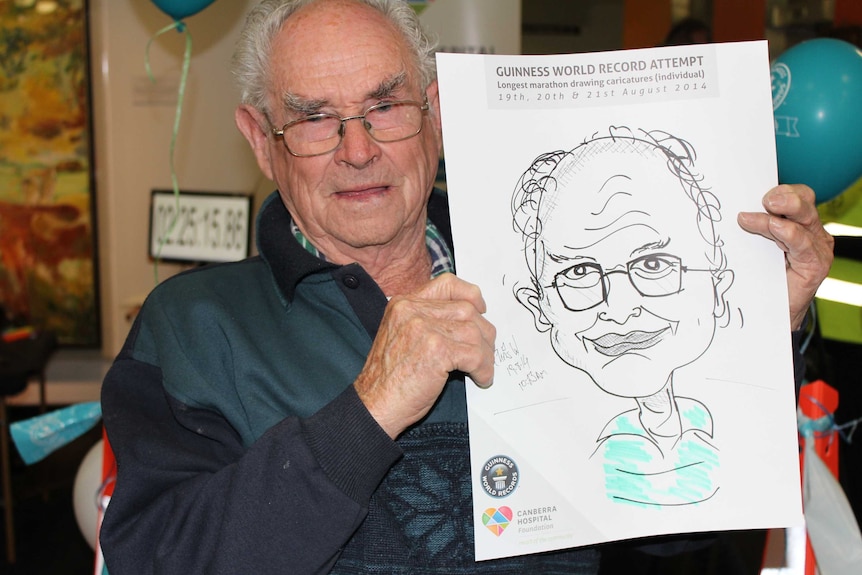 GUINNESS WORLD RECORD ATTEMPT
Longest marathon drawing caricatures (individual)
19th, 20th & 21st August 2014
02:25:15.86
19.8.14
10:53am
GUINNESS
WORLD RECORDS
CANBERRA
HOSPITAL
Foundation